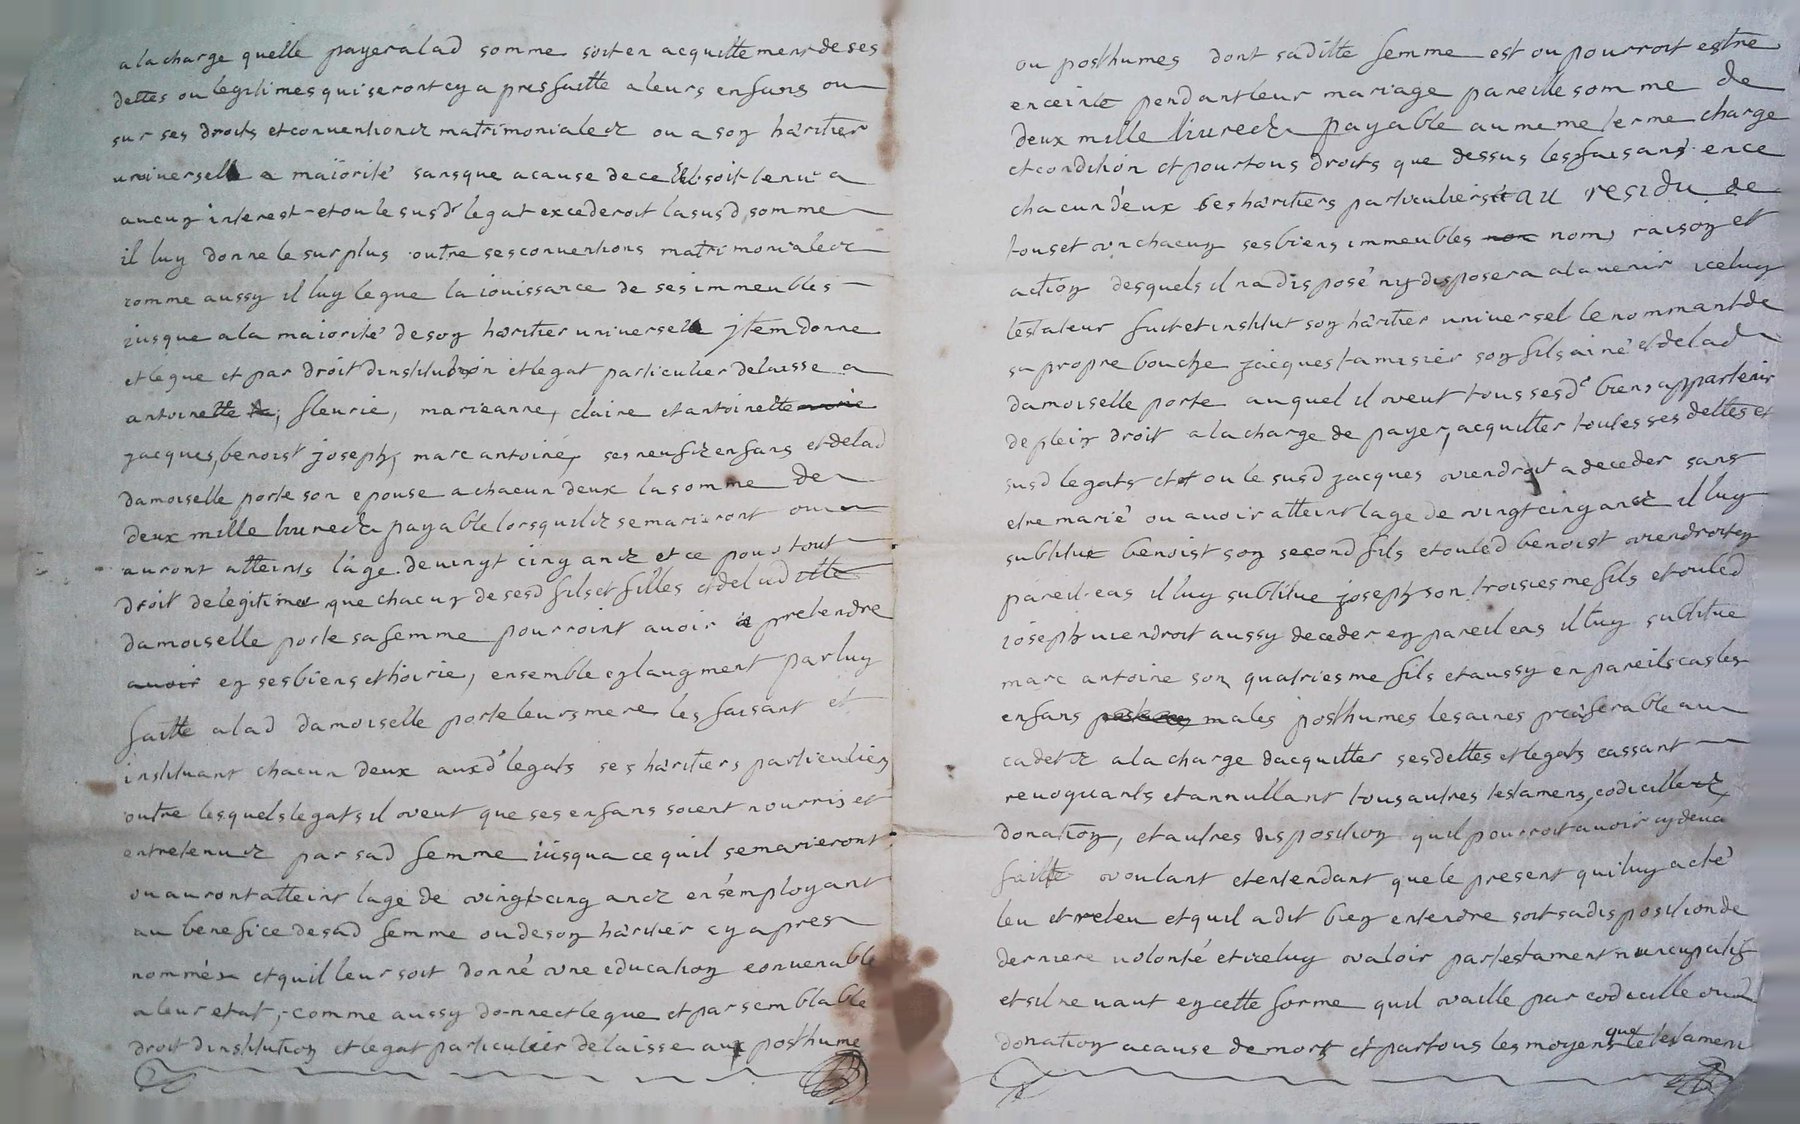 a la charge quelle payera lad somme soit en acquittement de ses
dettes ou legitimes qui seront cy apres faitte a leurs enfans ou
sur ses droits et conventionz matrimonialez ou a son haritier
universell a maiorité sans que a cause de ce il soit tenu a
aucun interest et ou le susd legat excederoit la susd somme
il luy donne le surplus outre ses conventions matrimonialez
comme aussy il luy legue la iouissance de ses immeubles
iusque a la maiorité de son haritier universel jtem donne
et legue et par droit dinstitution et legat particulier delaisse a
antoinette fleurie, marieanne, claire et antoinette
jacques, benoist joseph, marc antoine, ses neufz enfans et delad
damoiselle porte son epouse a chacun deux la somme de
deux mille livrez payable lorsquilz se marieront ou
auront atteints lage de vingt cinq anz et ce pour tout
droit de legitime que chacun de sesd fils et filles et de lad
damoiselle porte sa femme pourroint avoir a pretendre
avoir en ses biens et hoirie, ensemble en laugment par luy
faitte a lad damoiselle porte leurs mere les faisant et
instituant chacun deux auxd legats ses haritiers particuliers
outre lesquels legats il veut que ses enfans soient nourris et
entretenuz par sad femme iusqua ce quil se marieront
ou auront atteint lage de vingt cinq anz en s'employant
au benefice de sad femme ou de son haritier cy apres
nommés et quil leur soit donné une education convenable
a leur etat, comme aussy donne et legue et par semblable
droit dinstitution et legat particulier delaisse aux posthume
ou posthumes dont saditte femme est ou pourroit estre
enceinte pendant leur mariage pareille somme de
deux mille livrez payable au meme terme charge
et condition et pour tous droits que dessus les faisant en ce
chacun d'eux ses haritiers particuliers et au residu de
tous et un chacun ses biens immeubles noms raison et
action desquels il na disposé ny disposera a lavenir iceluy
testateur fait et institut son haritier universel le nommant de
sa propre bouche jacques tamisier son fils ainé et de lad
damoiselle porte auquel il veut tous sesd biens appartenir
de plein droit a la charge de payer, acquitter toutes ses dettes et
susd legats et ou le susd jacques viendroit a deceder sans
etre marié ou avoir atteint lage de vingt cinq anz il luy
subtitue benoist son second fils et ou led benoist viendroit en
pareil cas il luy subtitue joseph son troisiesme fils et ou led
ioseph viendroit aussy deceder en pareil cas il luy subtitue
marc antoine son quatriesme fils et aussy en pareils cas les
enfans males posthumes les aines preferable au
cadetz a la charge dacquitter ses dettes et legats cassant
revoquants et annullant tous autres testamens, codicillez
donation, et autres disposition quil pourroit avoir cy deva
faitte voulant et entendant que le present qui luy a été
leu et releu et quil a dit bien entendre soit sa disposition de
derniere volonté et iceluy valoir par testament nuncupatif
et sil ne vaut en cette forme quil vaille par codicille ou
donation a cause de mort et par tous les moyens que testament